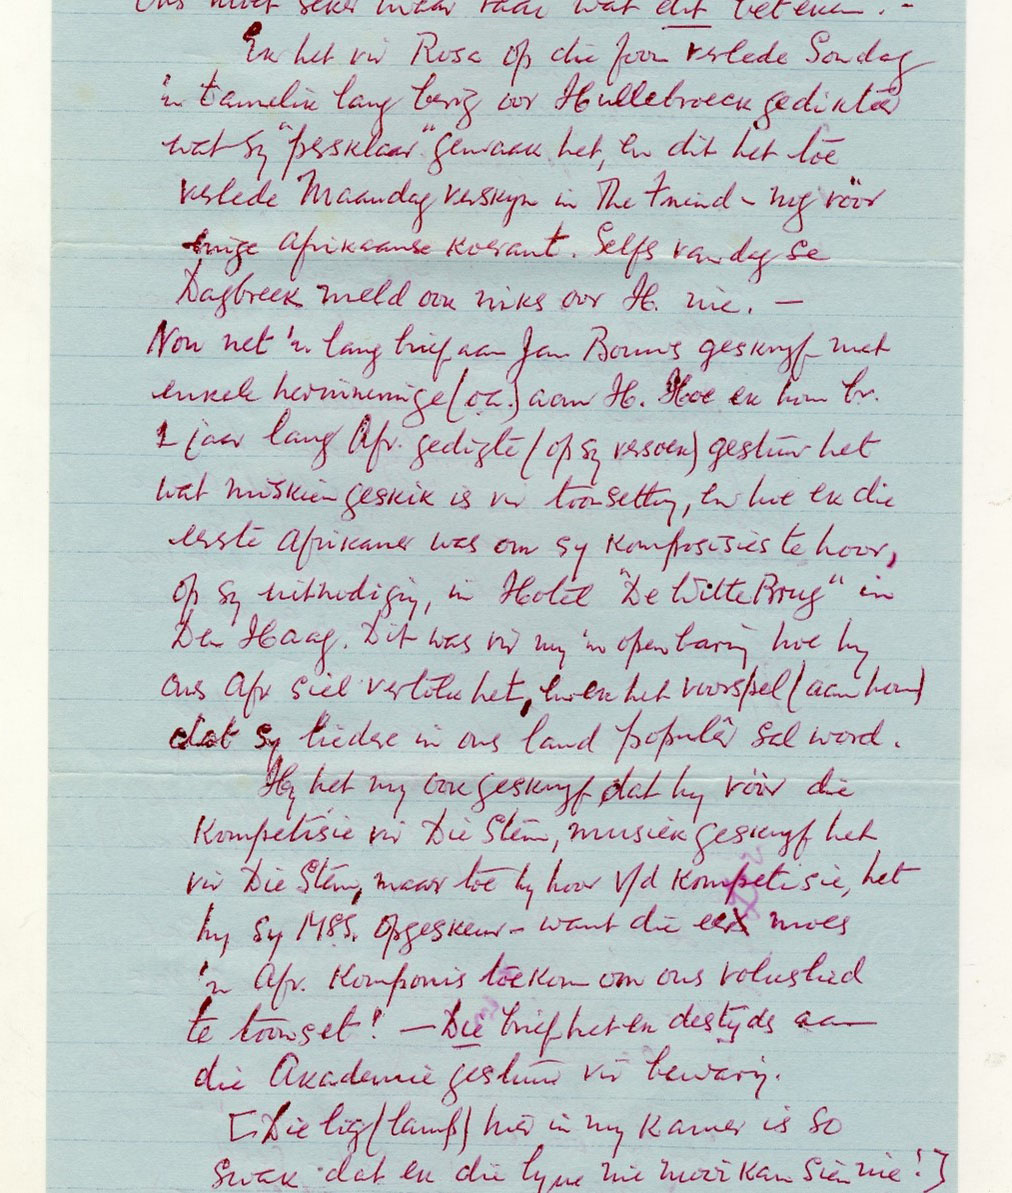 Ons moet seker maar raai wat dit beteken. -
Ek het vir Rosa op die foon verlede Sondag
'n tamelik lang berig oor Hullebroeck gedikteer
wat sy "persklaar" gemaak het, en dit het toe
verlede Maandag verskyn in The Friend - nog vóór
enige Afrikaanse koerant. Selfs vandag se
Dagbreek meld ook niks oor H. nie. —
Nou net 'n lang brief aan Jan Bouws geskryf met
enkele herinneringe (o.a.) aan H. Hoe ek hom br.
1 jaar lang Afr. gedigte (op sy versoek) gestuur het
wat miskien geskik is vir toonsetting, en hoe ek die
eerste Afrikaner was om sy komposisies te hoor,
op sy uitnodiging, in Hotel "De Witte Brug" in
Den Haag. Dit was vir my 'n openbaring hoe hy
ons Afr siel vertolk het, en ek het voorspel (aan hom)
dat sy liedere in ons land populêr sal word.
Hy het my ook geskryf dat hy vóór die
Kompetisie vir Die Stem, musiek geskryf het
vir Die Stem, maar toe hy hoor v/d Kompetisie, het
hy sy MSS. opgeskeur - want die eer moes
'n Afr. Komponis toekom om ons volkslied
te toonset! — Die brief het ek destyds aan
die Akademie gestuur vir bewaring.
[Die lig (lamp) hier in my kamer is so
swak dat ek die lyne nie mooi kan sien nie!]